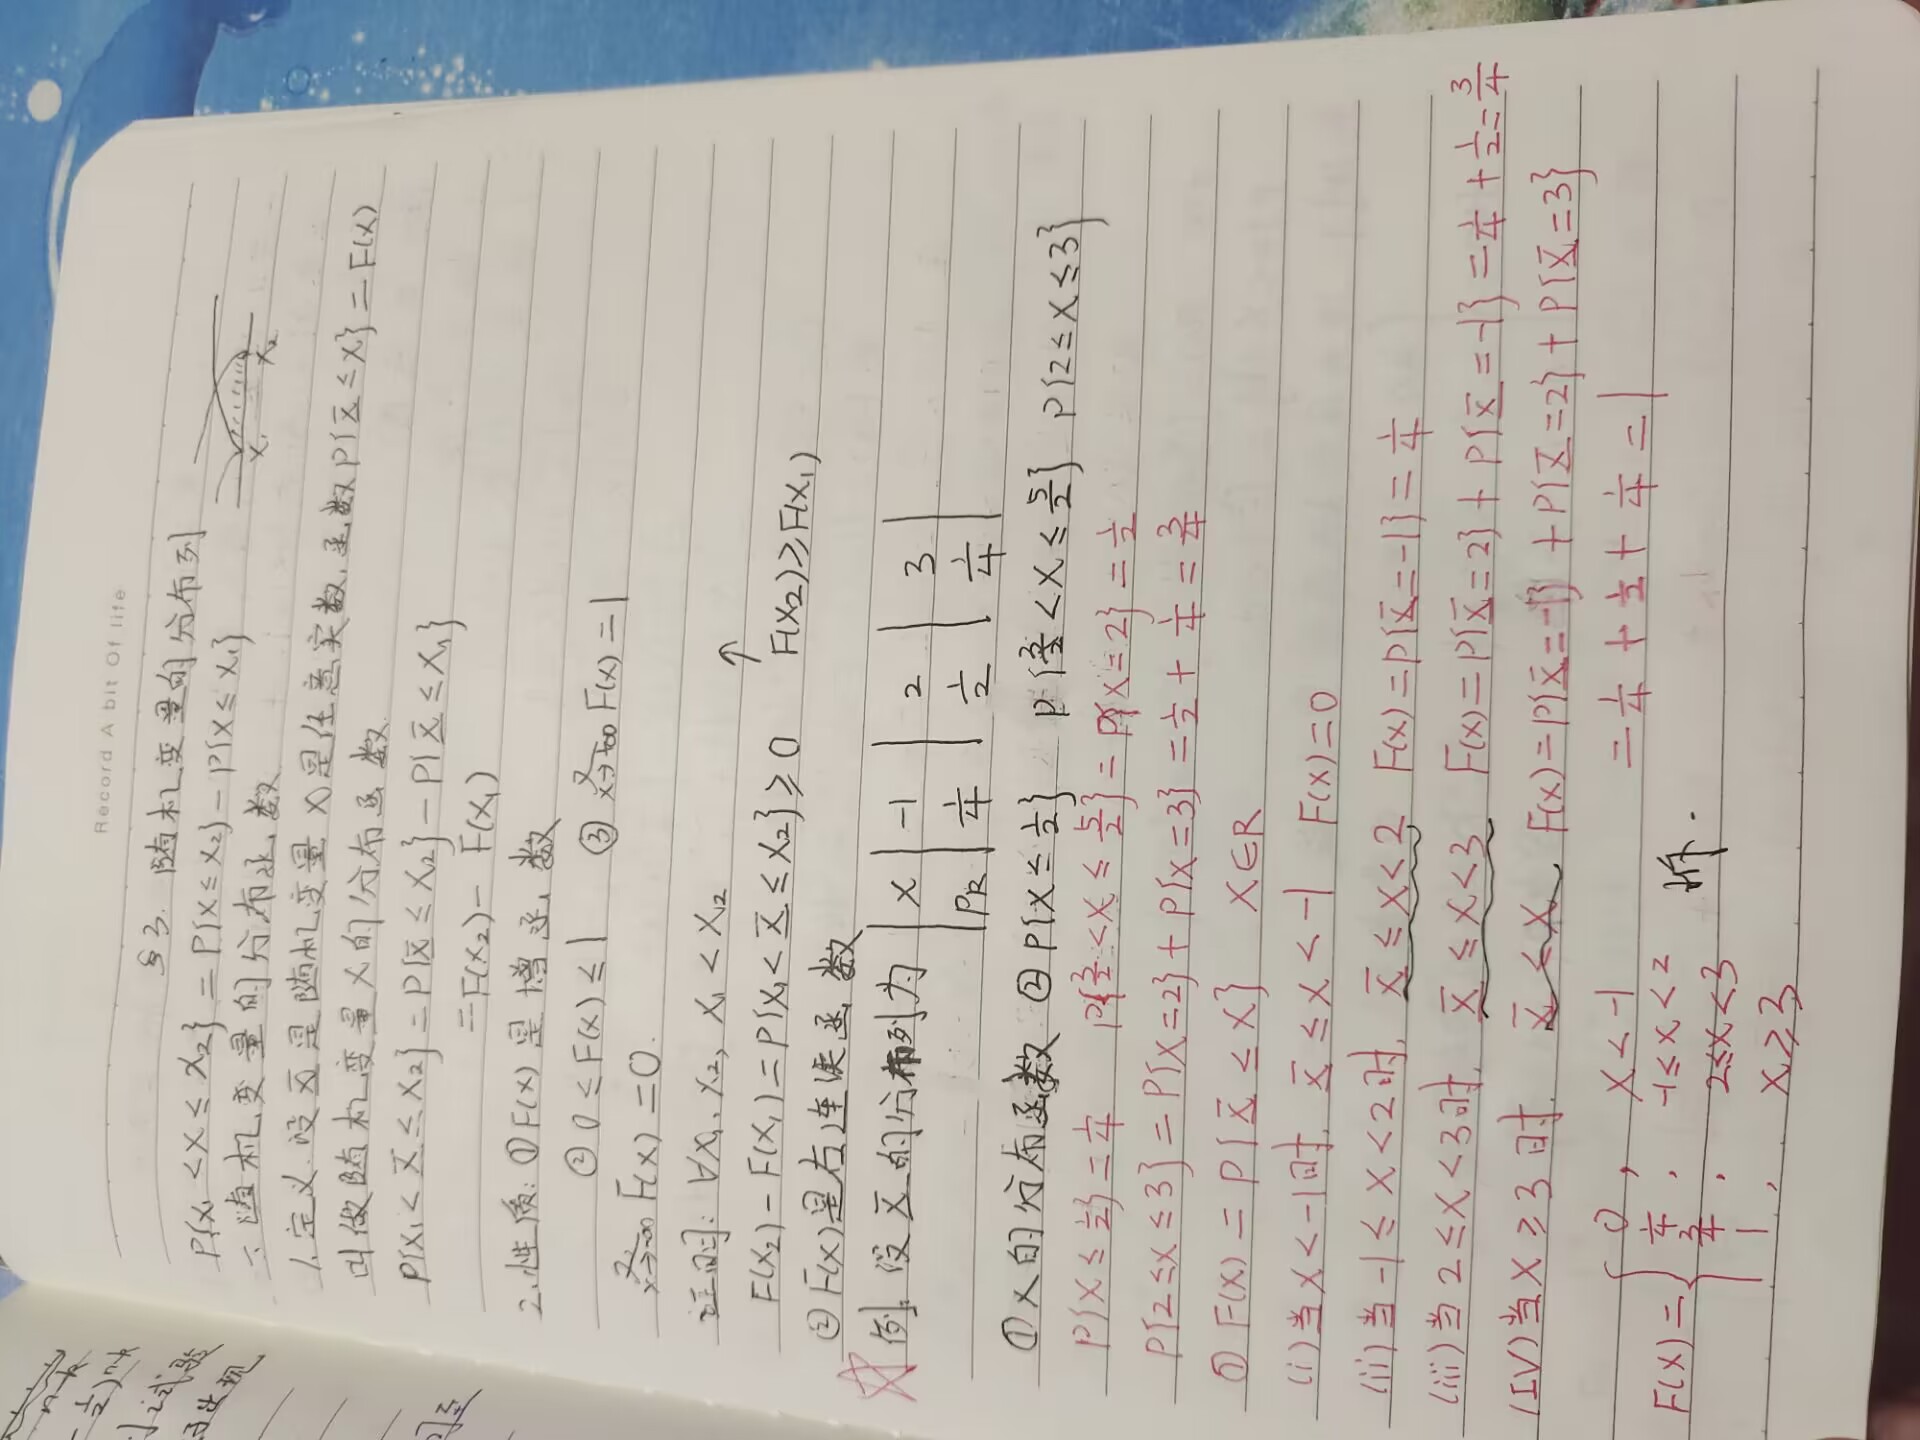 Record A bit Of life
§3. 随机变量的分布列
P{x₁<X≤x₂}=P{X≤x₂}-P{X≤x₁}
x₁ x₂
一、随机变量的分布函数
1.定义.设X̄是随机变量 x是任意实数,函数P{X̄≤x}=F(x)
叫做随机变量X的分布函数
P{x₁<X̄≤x₂}=P{X̄≤x₂}-P{X̄≤x₁}
=F(x₂)-F(x₁)
2.性质:①F(x)是增函数
②0≤F(x)≤1 ③ F(x)=1
x→-∞ F(x)=0.
证明:∀x₁,x₂, x₁<x₂ ↑
F(x₂)-F(x₁)=P{x₁<X̄≤x₂}≥0 F(x₂)≥F(x₁)
②F(x)是右连续函数
例.设X̄的分布列为
| X | -1 | 2 | 3 |
| PR | 1/4 | 1/2 | 1/4 |
①X的分布函数 ②P{X≤1/2} P{3/2<X≤5/2} P{2≤X≤3}
P{X≤1/2}=1/4 P{3/2<X≤5/2}=P{X=2}=1/2
P{2≤X≤3}=P{X=2}+P{X=3}=1/2+1/4=3/4
①F(x)=P{X̄≤x} x∈R
(i)当x<-1时, X̄≤x<-1 F(x)=0
(ii)当-1≤x<2时, X̄≤x<2 F(x)=P{X̄=-1}=1/4
(iii)当2≤x<3时, X̄≤x<3 F(x)=P{X̄=2}+P{X̄=-1}=1/4+1/2=3/4
(IV)当x≥3时. X̄≤x, F(x)=P{X̄=-1}+P{X̄=2}+P{X̄=3}
=1/4+1/2+1/4=1
F(x)={ 0, x<-1
1/4, -1≤x<2
3/4, 2≤x<3
1, x≥3